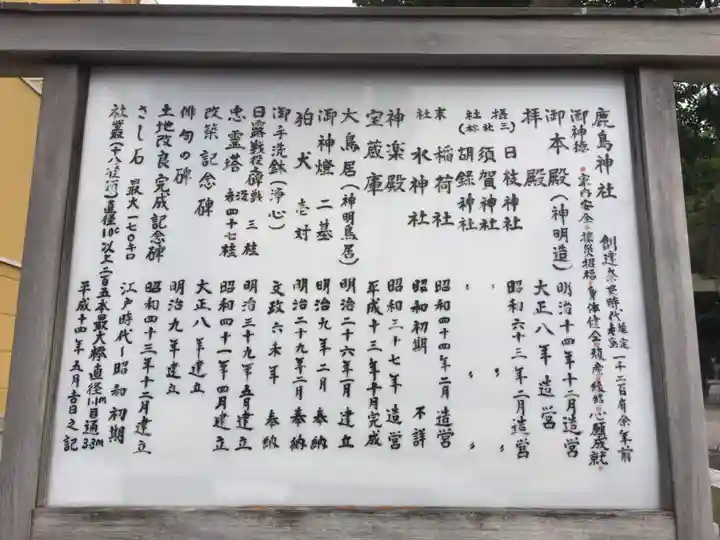 鹿島神社 創建奈良時代 推定 一千二百有余年前
御神徳 家内安全 招福 身体健全 安産 縁結 心願成就
御本殿(神明造) 明治十四年十二月造営
拝殿 大正八年造営
摂社 日枝神社 昭和六十三年二月造営
須賀神社 〃 〃
胡録神社 〃 〃
末社 稲荷社 昭和四十四年二月造営
水神社 昭和初期 不詳
神楽殿 昭和三十七年造営
宝蔵庫 平成十三年十月完成
大鳥居(神明鳥居) 明治二十六年一月建立
御神燈 二基 明治九年二月奉納
狛犬 壱対 明治二十九年二月奉納
御手洗鉢(浄心) 文政六未年 奉納
日露戦役碑 三柱 明治三十九年五月建立
忠霊塔 四十七柱 昭和四十一年四月建立
改築記念碑 大正八年建立
俳句の碑 明治九年建立
土地改良完成記念碑 昭和四十三年十二月建立
さし石 最大一七〇キロ 江戸時代~昭和初期
社叢(十八種類)直径10c以上二百五本最大樹直径1m目通3.3m
平成十四年五月吉日之記